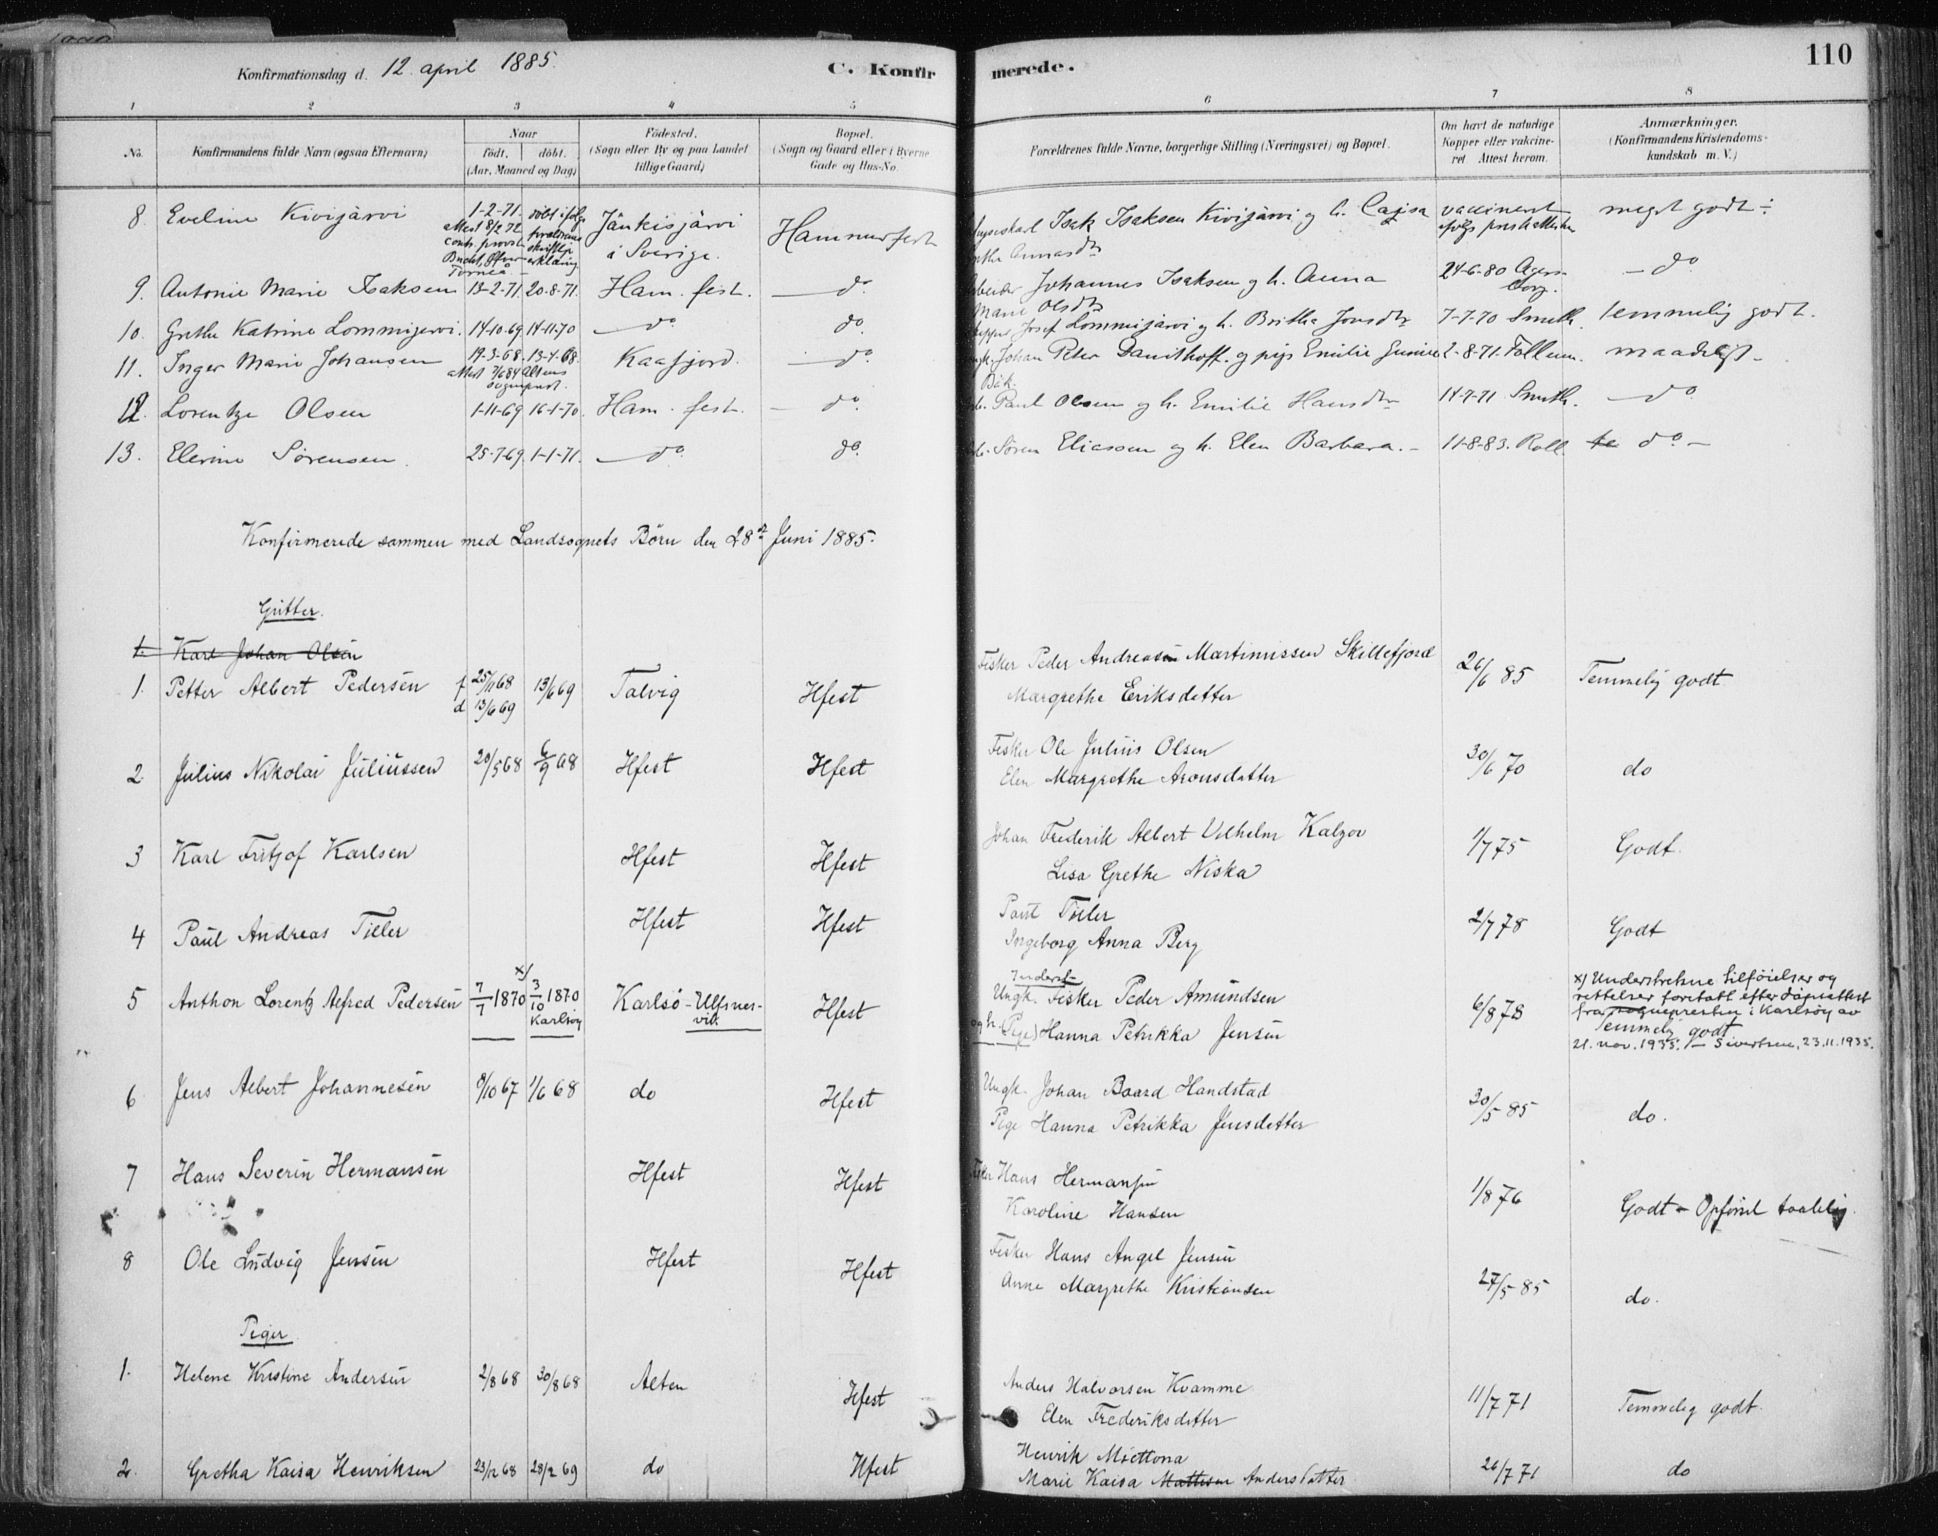 Konfirmationsdag d. 12. april 1885. C. Konfirmerede. 110
1 2 3 4 5 6 7 8
No. Konfirmandens fulde Navn (ogsaa Efternavn) Naar födt. döbt. (Aar, Maaned og Dag) Födested. (Sogn eller By og paa Landet tillige Gaard) Bopæl. (Sogn og Gaard eller i Byerne Gade og Hus-No. Forældrenes fulde Navne, borgerlige Stilling (Næringsvei) og Bopæl. Om havt de naturlige Kopper eller vakcineret. Attest herom. Anmærkninger. (Konfirmandens Kristendomskundskab m. V.)
8. Eveline Kivijärvi 1-2-71. döbt ifølge Jänkisjärvi i Sverige. Hammerfest Isak Isaksen Kivijärvi og h. Cajsa Grethe Annasdtr vaccineret meget godt ÷
attest 8/2 72
9. Antonie Marie Isaksen 13-2-71. 20-8-71. Ham.fest. do Arbeider Johannes Isaksen og h. Anna Marie Olsdtr 24-6-80 do
10. Grethe Katrine Lommijervi. 14-10-69 14-11-70 do do. Josef Lommijärvi og h. Britha Jonsdtr 7-7-70 Smith. temmelig godt.
11. Inger Marie Johansen 19-3-68. 13-4-68. Kaafjord. do. Johan Peter Davidhoff og pige Emilie Bæk. 2-8-71. Follum. maadeligt
attest 7/6 84 Altens sognepræst.
12. Lorentze Olsen 1-11-69 16-1-70. Ham.fest. do. Arb. Paul Olsen og h. Emilie Hansdtr 14-7-71 Smith. do
13. Elerine Sørensen. 25-7-69. 1-1-71. do. do. Arb. Sören Eliassen og h. Elen Barbara. 11-8-83. Roll te do
Konfirmerede sammen med Landsognets Börn den 28de Juni 1885.
Gutter.
1. Karl Johan Olsen
1. Petter Albert Pedersen f 25/11 68 d 13/6 69 13/6 69 Talvig Hfest Fisker Peder Andreasen Martinussen Skillefjord Margrethe Eriksdatter 26/6 85 Temmelig godt
2 Julius Nikolai Juliussen 20/5 68 6/9 68 Hfest Hfest Fisker Ole Julius Olsen Elen Margrethe Aronsdatter 30/6 70 do
3 Karl Fritjof Karlsen Hfest Hfest Johan Frederik Albert Vilhelm Kalzov Lisa Grethe Niska 1/7 75 Godt.
4 Paul Andreas Tiller Hfest Hfest Paul Tiller Ingeborg Anna Berg 2/7 78 Godt
5 Anthon Lorentz Alfred Pedersen 7/7 1870 x) 3/10 1870 Karlsöy Karlsö - Ulfsnesvik Hfest Ungk. Fisker Peder Amundsen og h. (Pige) Hanna Petrikka Jensen 6/8 78 Temmelig godt
x) Understrekne tilföielser og rettelser foretatt efter dåpsattest fra sognepresten i Karlsøy av 21. nov. 1935. Sivertsen, 23.11.1935.
6 Jens Albert Johannesen 8/10 67 1/6 68 do Hfest Ungk. Johan Baard Handstad Pige Hanna Petrikka Jensdatter 30/5 85 do.
7 Hans Severin Hermansen Hfest Hfest Fisker Hans Hermansen Karoline Hansen 1/8 76 Godt - Opförsel taalelig.
8 Ole Ludvig Jensen Hfest Hfest Fisker Hans Angel Jensen Anne Margrethe Kristiansen 27/5 85 do.
Piger
1. Helene Kristine Andersen 2/8 68 30/8 68 Alten Hfest Anders Halvorsen Kvamme Elen Frederiksdatter 11/7 71 Temmelig godt.
2. Gretha Kaisa Henriksen 23/12 68 28/2 69 do Hfest Henrik Miettona Marie Kaisa Mattesen Andersdatter. 26/7 71 do